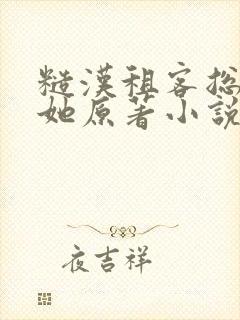 糙漢租客捴
她原著小說
夜吉祥